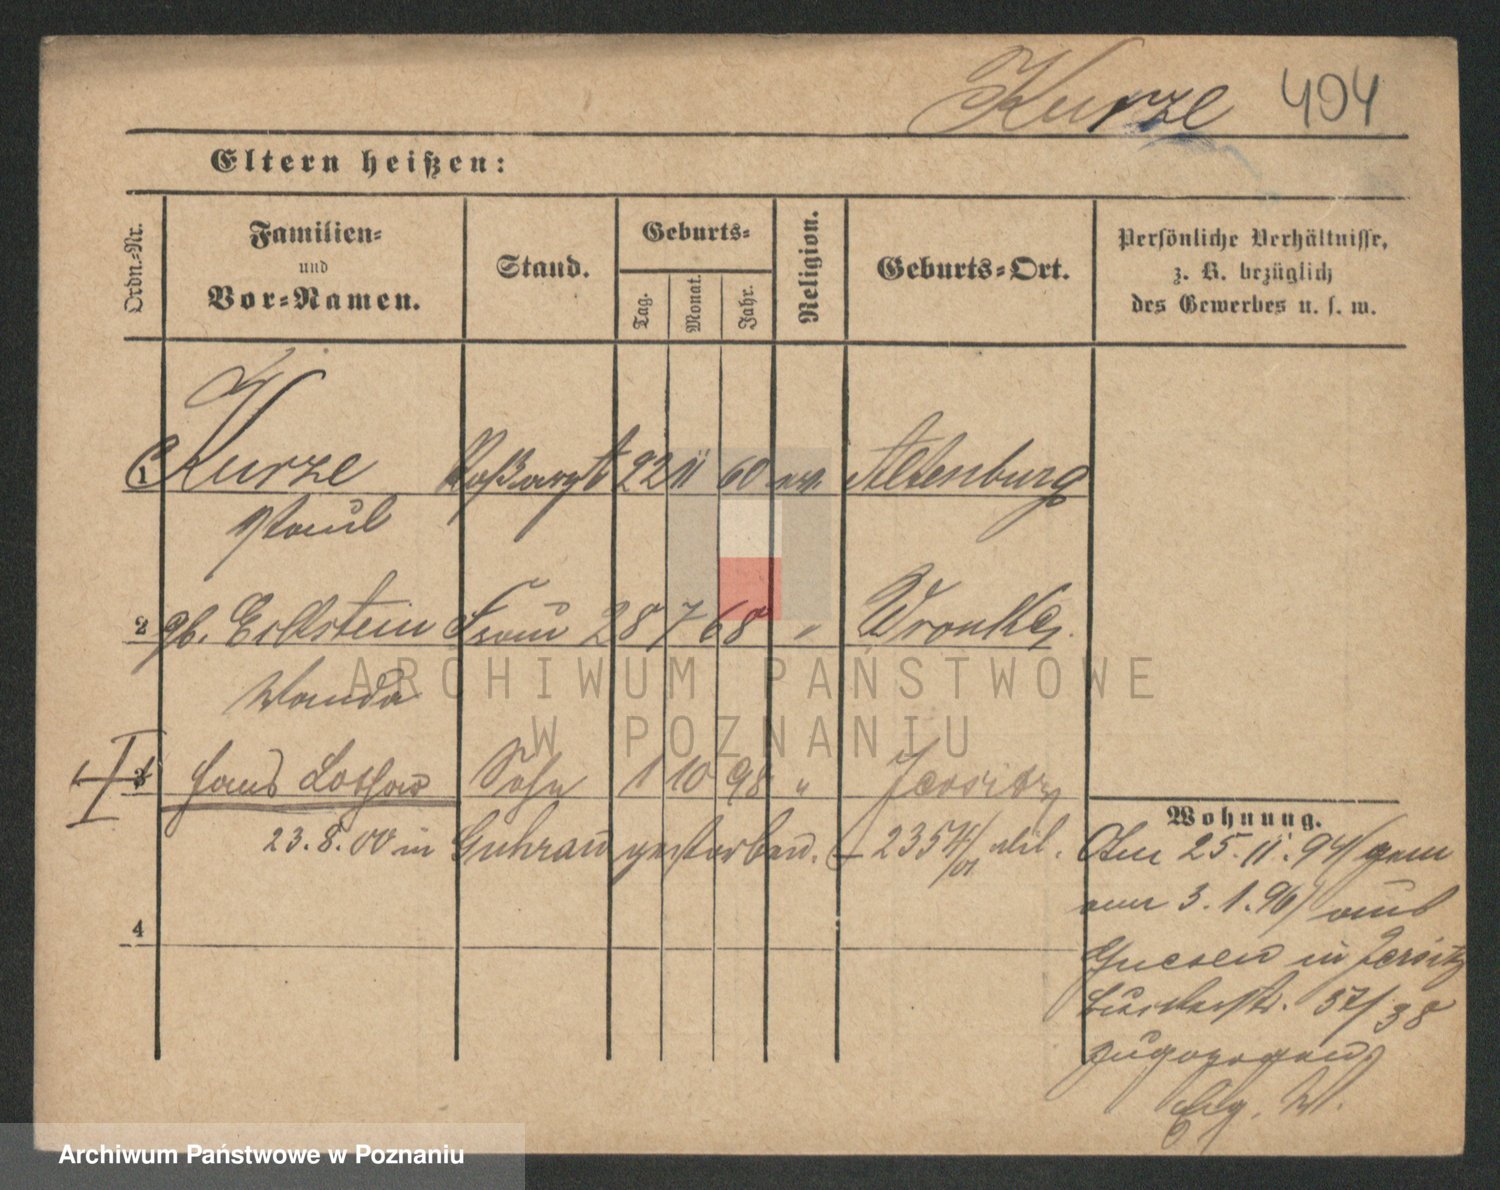 Kurze 404
Eltern heißen:
Ordn.-Nr.
Familien-
und
Vor-Namen.
Stand.
Geburts-
Tag.
Monat.
Jahr.
Religion.
Geburts-Ort.
Persönliche Verhältnisse,
z. B. bezüglich
des Gewerbes u. s. w.
1 Kurze Roßarzt 22 11 60 ev. Altenburg
Paul
2 gb. Eckstein Frau 28 7 68 " Wronke
Wanda
3 Hans Lothar Sohn 1 10 98 " Jersitz
23. 8. 00 in Guhrau gestorben.
4
Wohnung.
Am 25. 11. 94 gem
am 3. 1. 96 aus
Gnesen in Jersitz
37/38
zugezogen
ARCHIWUM PAŃSTWOWE
W POZNANIU
Archiwum Państwowe w Poznaniu